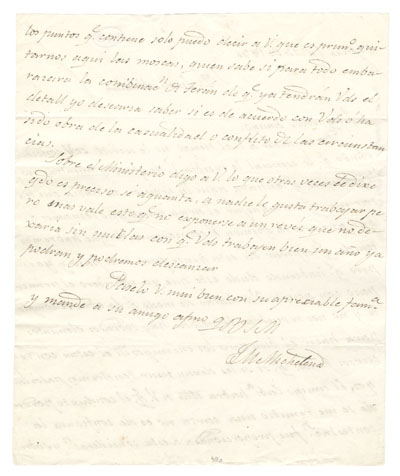 los puntos q.e contiene solo puedo decir a V. que es prim.o qui-
tarnos aqui las moscas, quien sabe si para todo emba-
razará la combinac.n de Teran de q.e ya tendrán Vds el
detall, yo desearia saber si es de acuerdo con Vds o ha
sido obra de la casualidad o conflicto de las circunstan
cias.
Sobre el Ministerio digo a V. lo que otras veces se dixe
es preciso se aguanta, a nadie le gusta trabajar pe
ro mas vale este q.e no exponerse a un reves que no de-
xaria sin muelas con q.e Vds trabajen bien un año ya
podran y podremos descansar
Paselo V. mui bien con su apreciable fam.a
y mande a su amigo afmo Q B S M